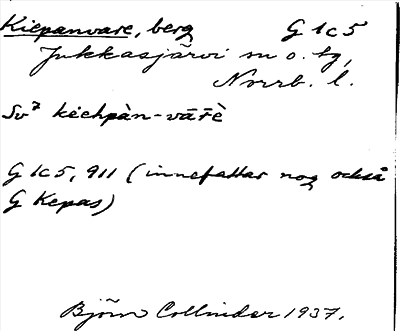 Kiepanvare, berg G 1c5
Jukkasjärvi sn o. tg,
Norrb. l.
Sv⁷ kiehpàn-vāřè
G 1c5, 911 (innefattar nog också
G Kepas)
Björn Collinder 1937.